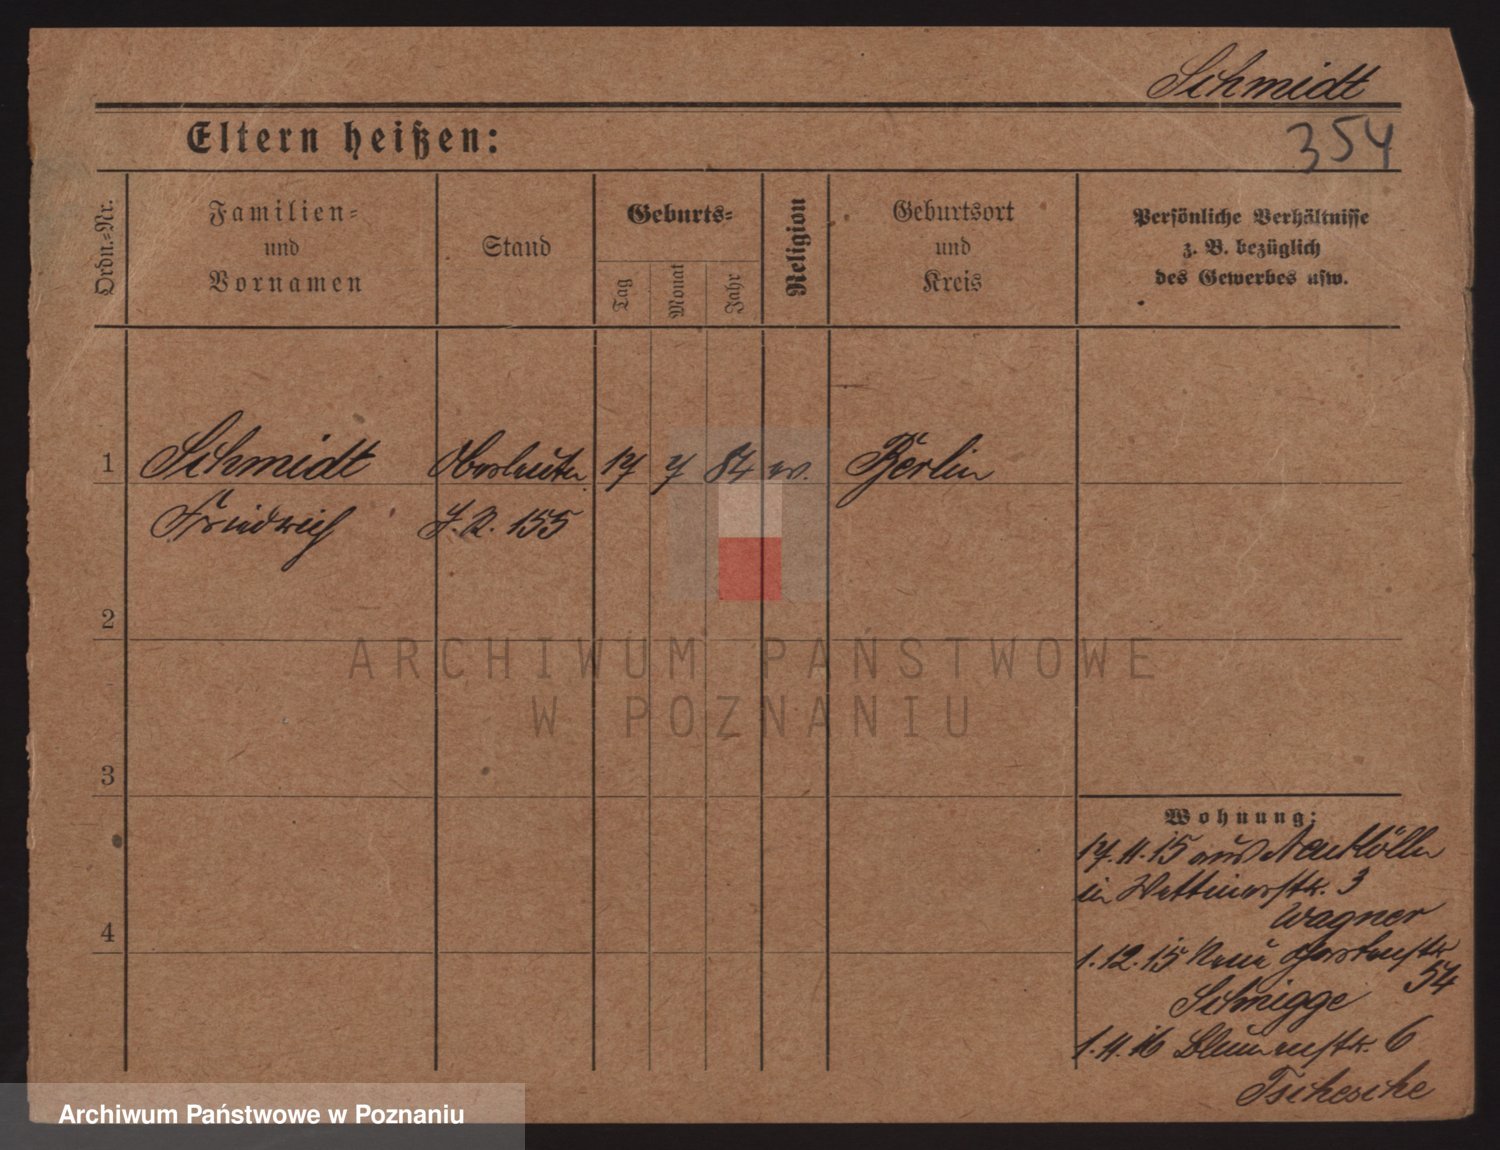 Schmidt
Eltern heißen:
354
Ordn.-Nr.
Familien-
und
Vornamen
Stand
Geburts-
Tag
Monat
Jahr
Religion
Geburtsort
und
Kreis
Persönliche Verhältnisse
z. B. bezüglich
des Gewerbes usw.
1
Schmidt
Oberleutn.
17
7
84
ev.
Berlin
Friedrich
J. R. 155
2
3
4
Wohnung:
17.11.15 aus Neukölln
in Wettinerstr. 3
Wagner
1.12.15 Neue Gartenstr
54
Schnigge
1.4.16 Blumenstr. 6
Tschesche
ARCHIWUM PAŃSTWOWE
W POZNANIU
Archiwum Państwowe w Poznaniu